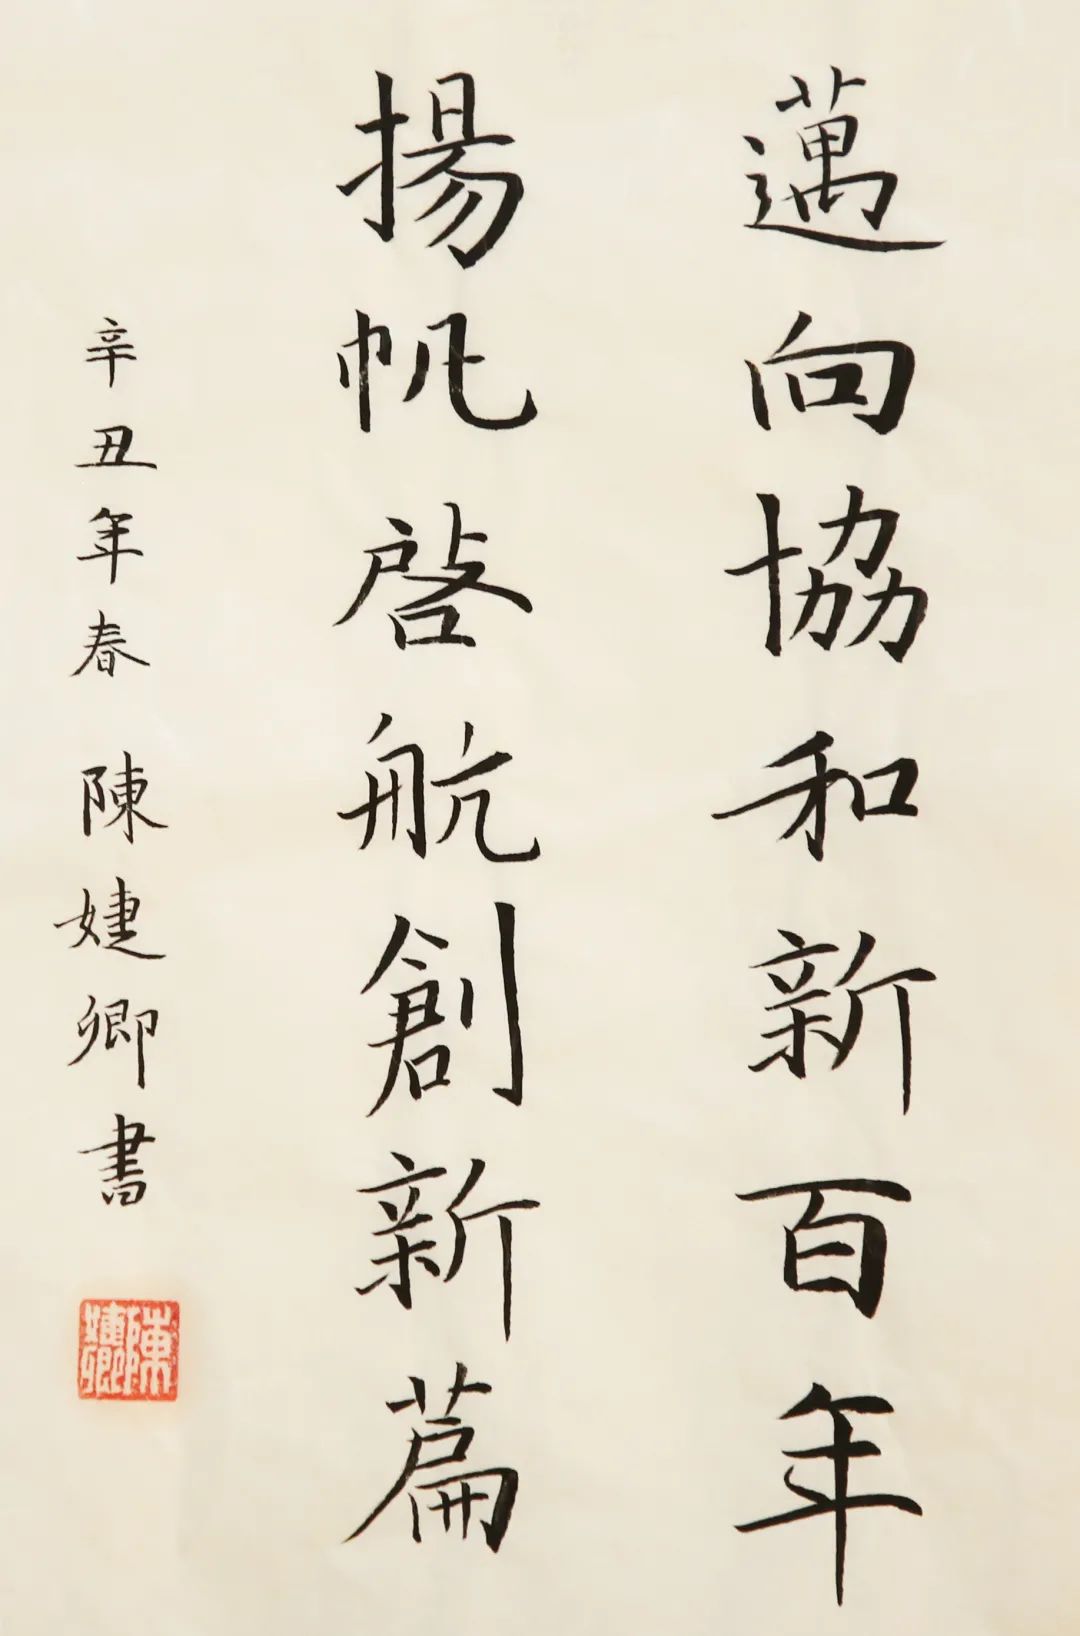 邁向協和新百年
揚帆啓航創新篇
辛丑年春 陳婕卿書
陳婕卿